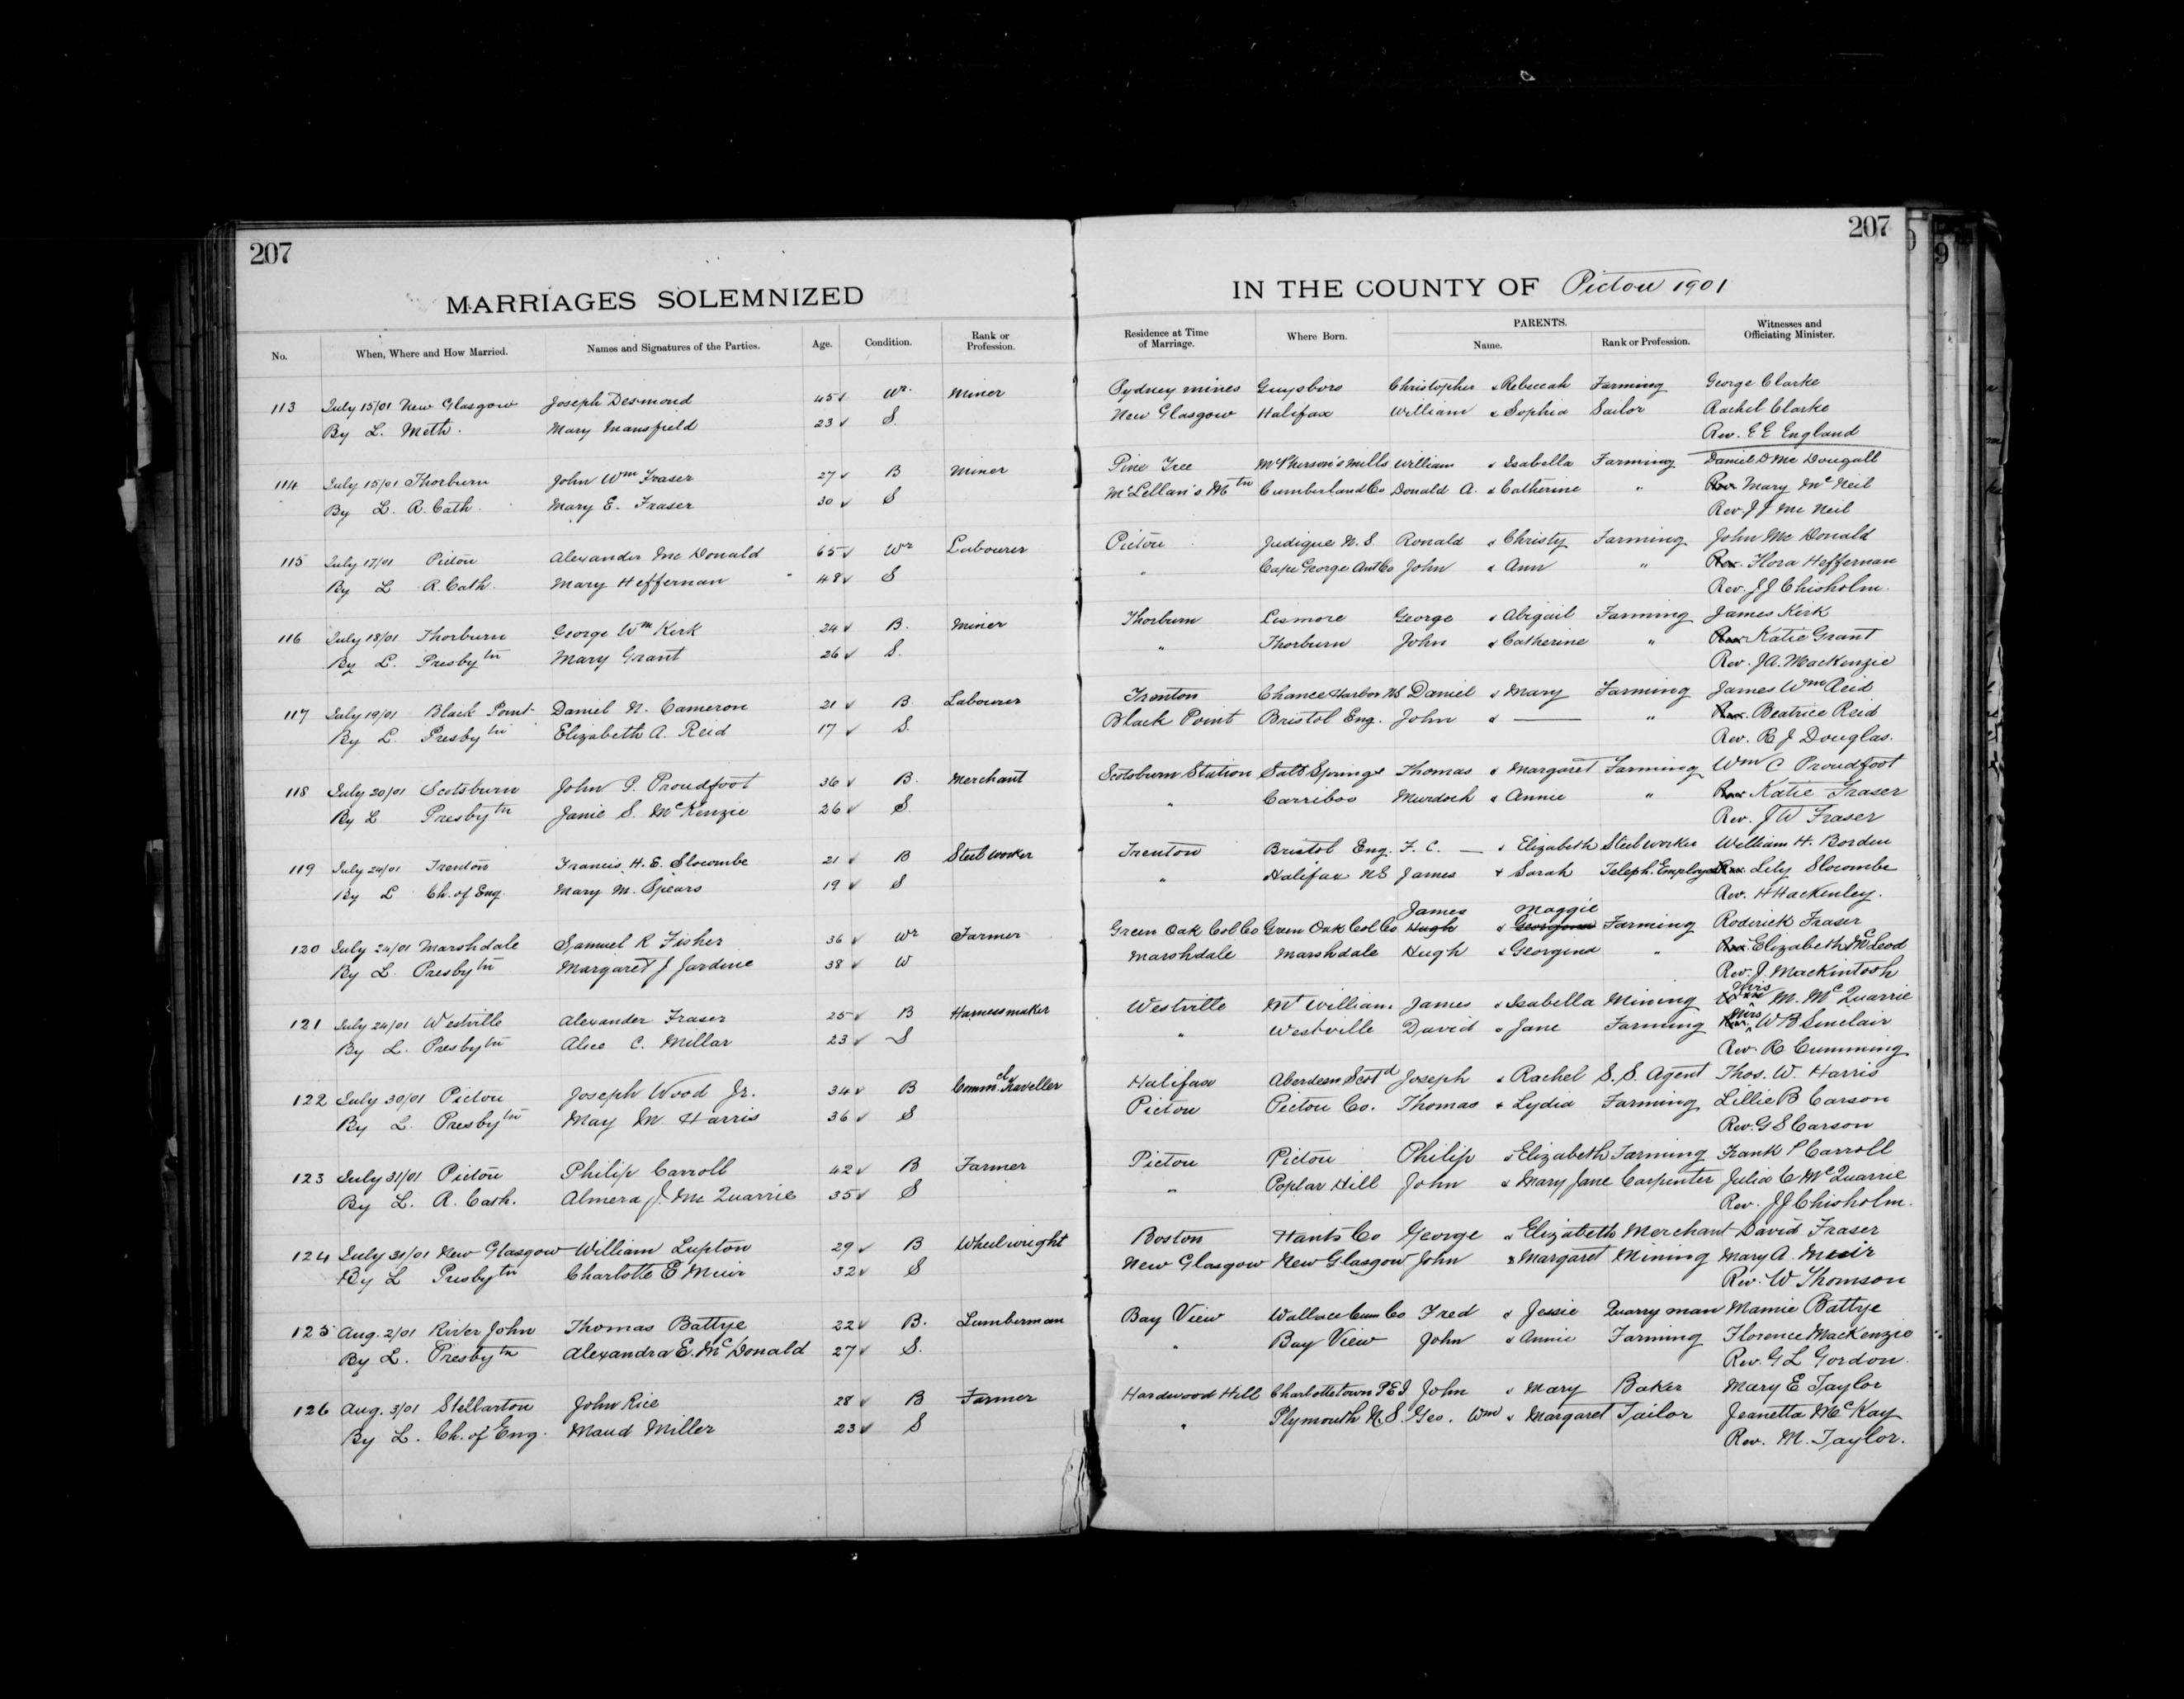 207
207
MARRIAGES SOLEMNIZED
IN THE COUNTY OF Pictou 1901
No. When, Where and How Married. Names and Signatures of the Parties. Age. Condition. Rank or Profession. Residence at Time of Marriage. Where Born. PARENTS. Name. Rank or Profession. Witnesses and Officiating Minister.
113 July 15/01 New Glasgow Joseph Desmond 45 Wr. Miner Sydney mines Guysboro Christopher & Rebecah Farming George Clarke
By L. Meth. Mary Mansfield 23 S. New Glasgow Halifax William & Sophia Sailor Rachel Clarke
Rev. E E England
114 July 15/01 Thorburn John Wm Fraser 27 B Miner Pine Tree McPherson's Mills William & Isabella Farming Daniel D Mc Dougall
By L. R. Cath. Mary E. Fraser 30 S McLellan's Mtn Cumberland Co Donald A. & Catherine " Mary McNeil
Rev. J J Mc Neil
115 July 17/01 Pictou Alexander Mc Donald 65 Wr Labourer Pictou Judique N. S. Ronald & Christy Farming John Mc Donald
By L R. Cath. Mary Heffernan 48 S " Cape George Ant Co John & Ann " Flora Heffernan
Rev. J J Chisholm.
116 July 18/01 Thorburn George Wm Kirk 24 B. Miner Thorburn Lismore George & Abigail Farming James Kirk
By L. Presbytn Mary Grant 26 S. " Thorburn John & Catherine " Katie Grant
Rev. J. A. MacKenzie
117 July 19/01 Black Point Daniel N. Cameron 21 B Labourer Trenton Chance Harbor NS Daniel & Mary Farming James Wm Reid
By L. Presbytn Elizabeth A. Reid 17 S. Black Point Bristol Eng. John & — " Beatrice Reid
Rev. R J Douglas.
118 July 20/01 Scotsburn John P. Proudfoot 36 B. Merchant Scotsburn Station Salt Springs Thomas & Margaret Farming Wm C Proudfoot
By L Presbytn Janie S. McKenzie 26 S " Carriboo Murdoch & Annie " Katie Fraser
Rev. J W Fraser
119 July 24/01 Trenton Francis. H. E. Slocombe 21 B Steel worker Trenton Bristol Eng. F. C. — & Elizabeth Steel worker William H. Borden
By L Ch. of Eng. Mary M. Spears 19 S " Halifax NS James & Sarah Teleph. Employee Lily Slocombe
Rev. H Hackenley.
James Maggie
120 July 24/01 Marshdale Samuel R Fisher 36 Wr Farmer Green Oak Col Co Green Oak Col Co Hugh & Georgina Farming Roderick Fraser
By L. Presbytn Margaret J Jardine 38 W Marshdale Marshdale Hugh & Georgina " Elizabeth McLeod
Rev. J. Mackintosh
121 July 24/01 Westville Alexander Fraser 25 B Harnessmaker Westville Mt William James & Isabella Mining Mrs M. McQuarrie
By L. Presbytn Alice C. Millar 23 S " Westville David & Jane Farming Mrs W B Sinclair
Rev. R Cumming
122 July 30/01 Pictou Joseph Wood Jr. 34 B Commcl Traveller Halifax Aberdeen Scotd Joseph & Rachel S. S. Agent Thos. W. Harris
By L. Presbytn May M. Harris 36 S Pictou Pictou Co. Thomas & Lydia Farming Lillie B Carson
Rev. G S Carson
123 July 31/01 Pictou Philip Carroll 42 B Farmer Pictou Pictou Philip & Elizabeth Farming Frank P Carroll
By L. R. Cath. Almera J. Mc Quarrie 35 S " Poplar Hill John & Mary Jane Carpenter Julia C McQuarrie
Rev. J J Chisholm.
124 July 31/01 New Glasgow William Lupton 29 B Wheelwright Boston Hants Co George & Elizabeth Merchant David Fraser
By L Presbytn Charlotte E Muir 32 S New Glasgow New Glasgow John & Margaret Mining Mary A. Muir
Rev. W Thomson
125 Aug. 2/01 River John Thomas Battye 22 B. Lumberman Bay View Wallace Cum Co Fred & Jessie Quarry man Mamie Battye
By L. Presbytn Alexandra E. McDonald 27 S. " Bay View John & Annie Farming Florence MacKenzie
Rev. G L Gordon.
126 Aug. 3/01 Stellarton John Rice 28 B Farmer Hardwood Hill Charlottetown P E I John & Mary Baker Mary E Taylor
By L. Ch. of Eng. Maud Miller 23 S " Plymouth N. S. Geo. Wm & Margaret Tailor Jeanetta McKay
Rev. M. Taylor.